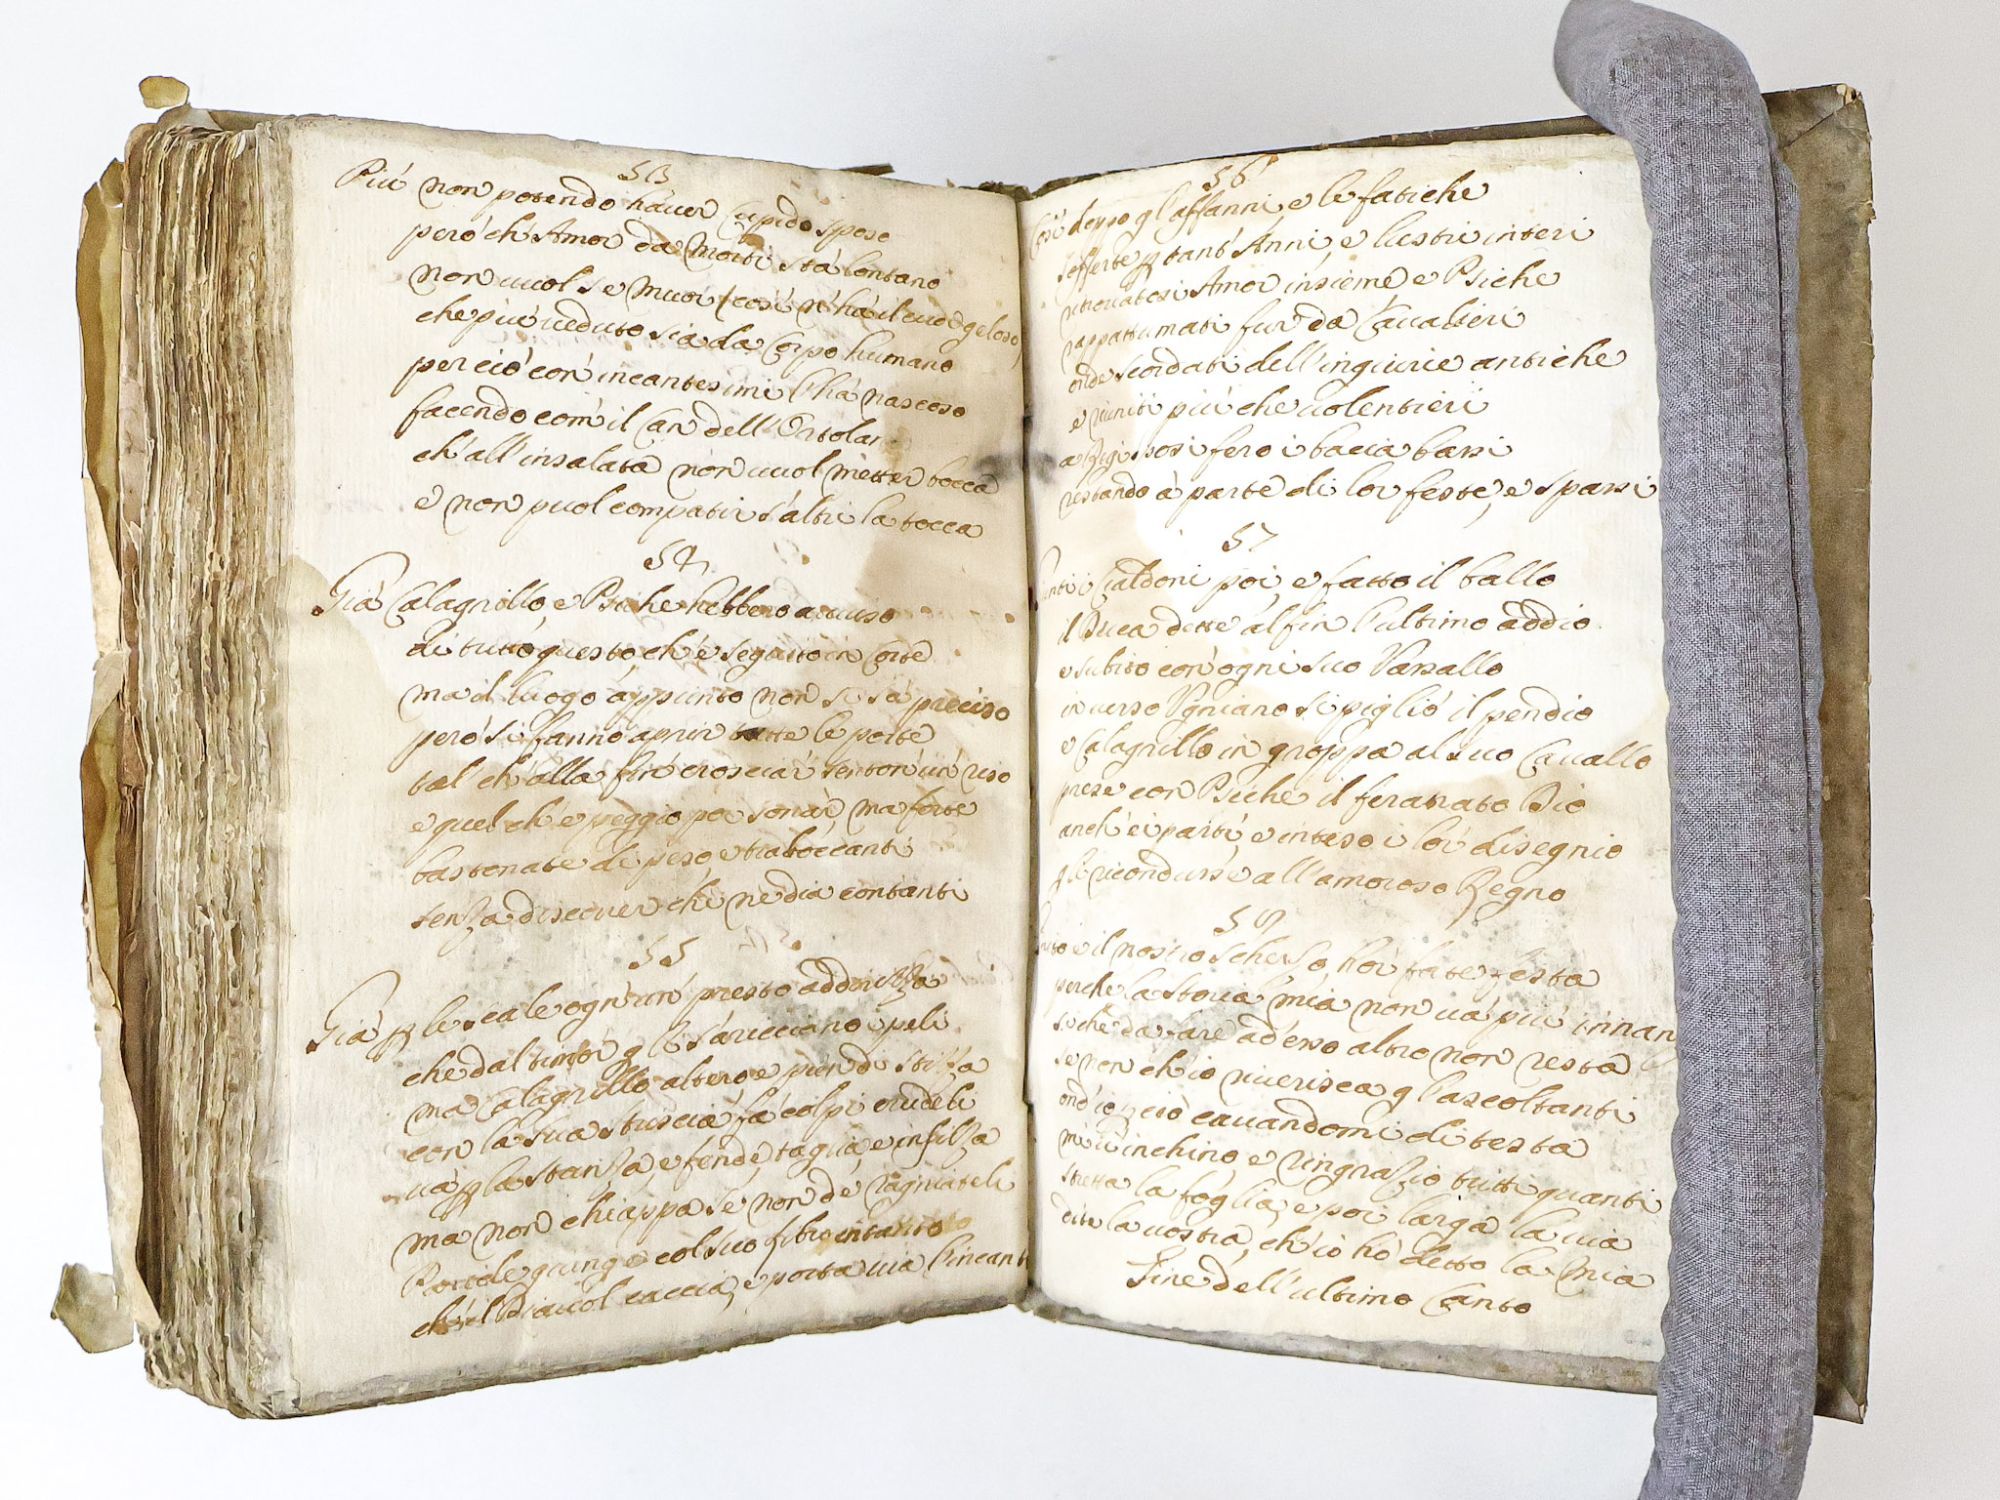 53
Più non potendo haver Cupido sposo
però ch'Amor da Morti stà lontano
non vuol se muor (così n'hà il cuor geloso)
che più veduto sia da Corpo humano
perciò con incantesimi l'hà nascoso
facendo com'il Can dell'Ortolan
ch'all'insalata non vuol metter bocca
e non puol compatir s'altri la tocca
54
Già Calagrillo, e Psiche hebbero avviso
di tutto questo ch'è seguito in Corte
ma il luogo appunto non si sà preciso
però si fanno aprir tutte le porte
tal ch'alla fin crosciar senton un riso
e quel ch'è peggio poi sonar ma forte
bastonate di peso e traboccanti
senza discerner chi ne dia contanti
55
Già p le scale ogn'un presto addrizza
che dal timor gli s'aricciano i peli
ma Calagrillo altero e pien di stizza
con la sua striscia fà colpi crudeli
và p la stanza, e fende, taglia, e infilza
ma non chiappa se non de ragniateli
Paride giunge col suo libro intanto
ch'il Diavol caccia, e porta via l'incant
56
Così doppo gl'affanni e le fatiche
sofferte p tant'Anni, e lustri interi
ritrovatesi Amor insieme e Psiche
rappattumati fur da Cavalieri
onde scordati dell'ingiurie antiche
e riuniti più che volentieri
a Regi sposi fero i bacia bassi
restando à parte di lor feste, e spassi
57
i Caldoni poi, e fatto il ballo
il Duca dette alfin l'ultimo addio
e subito con ogni suo Vassallo
in verso Ugniano si pigliò il pendio
e Calagrillo in groppa al suo Cavallo
prese con Psiche il faretrato Dio
anch'ei partì, e inteso i lor disegnio
gli ricondusse all'amoroso Regno
58
è il nostro scherzo, hor fate festa
perche la storia mia non và più innan
siche da fare adesso altro non resta
se non ch'io riverisca gl'ascoltanti
ond'io p ciò cavandomi di testa
mi v'inchino, e ringrazio tutti quanti
stretta la foglia, e poi larga la via
dite la vostra, ch'io hò detto la mia
Fine dell'ultimo Canto